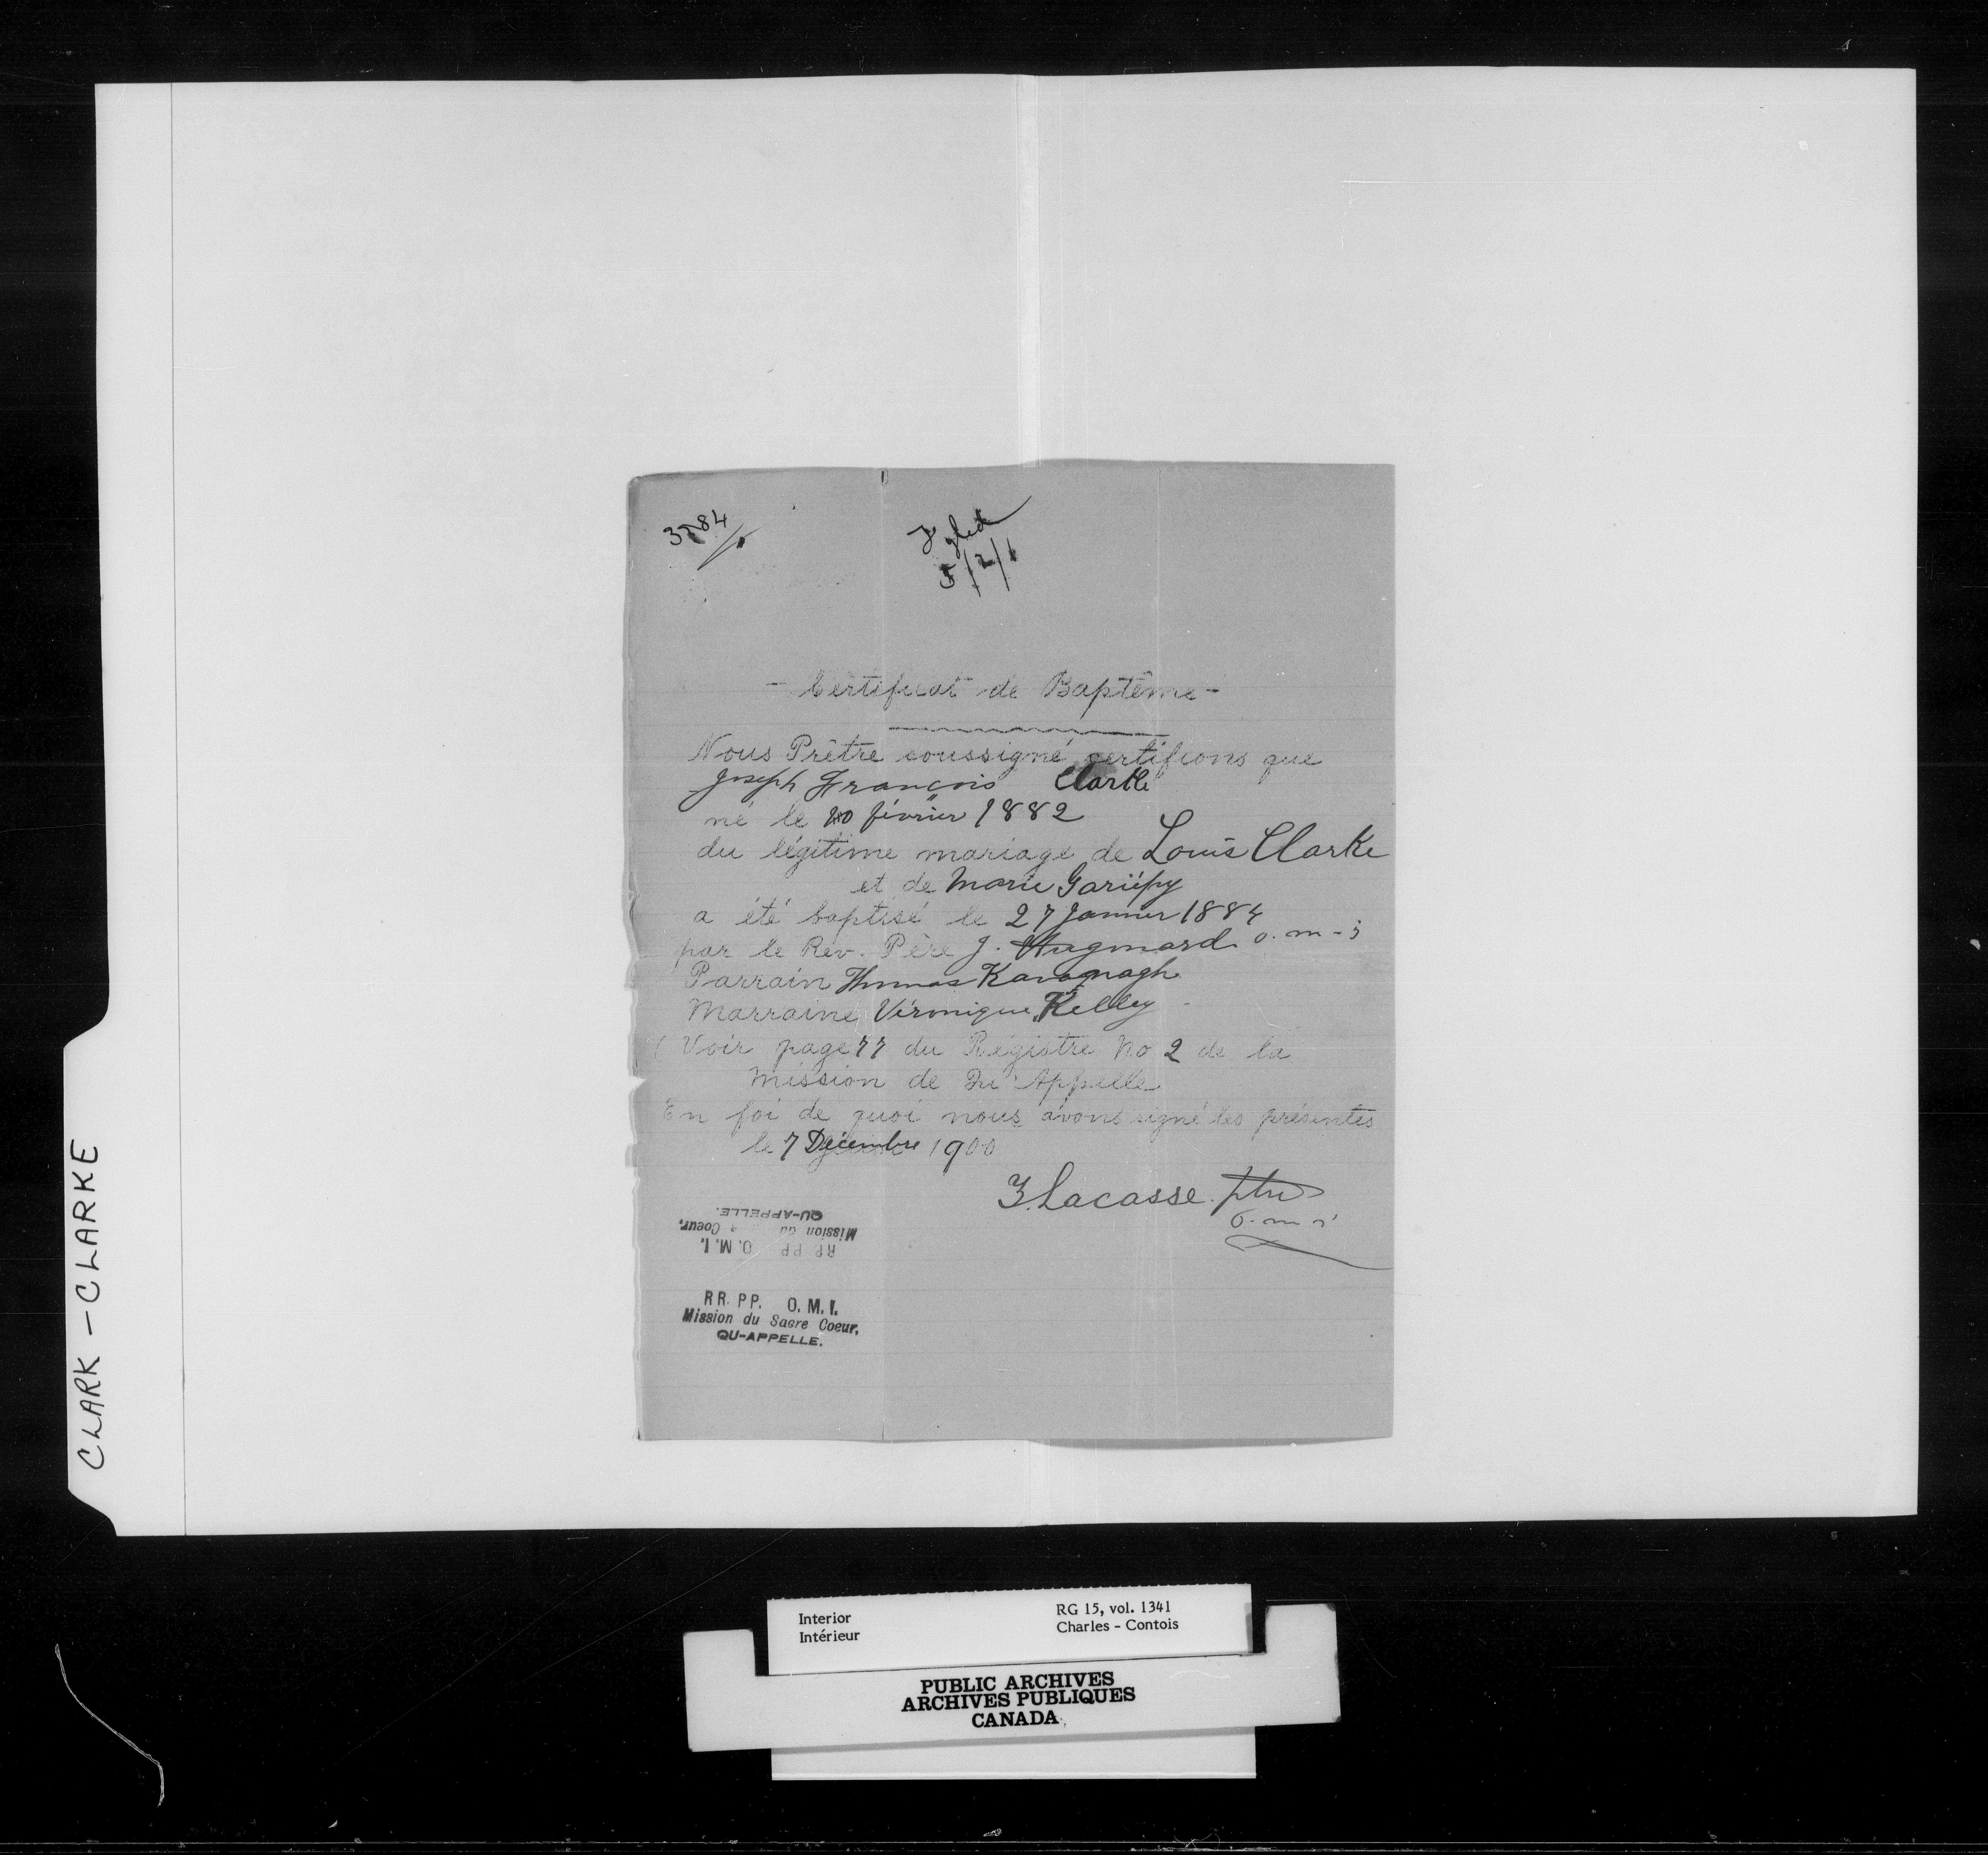 CLARK - CLARKE
- Certificat de Baptême -
Nous Prêtre soussigné certifions que
Joseph François Clarke
né le février 1882
du légitime mariage de Louis Clarke
et de Marie Gariépy
a été baptisé le 27 Janvier 1884
par le Rev. Père J. Hugonard o.m-i
Parrain Thomas Kavanagh
Marraine Véronique Kelley
( Voir page 77 du Régistre No 2 de la
Mission de Qu'Appelle
En foi de quoi nous avons signé les présentes
le 7 Décembre 1900
Z. Lacasse. ptre
o.m i
QU-APPELLE.
Mission du Coeur,
RR PP O.M.I.
RR. PP. O.M.I.
Mission du Sacre Coeur,
QU-APPELLE.
Interior
Intérieur
RG 15, vol. 1341
Charles - Contois
PUBLIC ARCHIVES
ARCHIVES PUBLIQUES
CANADA